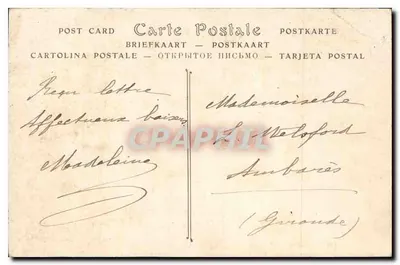 POST CARD Carte Postale POSTKARTE
BRIEFKAART — POSTKAART
CARTOLINA POSTALE — ОТКРЫТОЕ ПИСЬМО — TARJETA POSTAL
Reçu lettre
Affectueux baisers
Madeleine
Mademoiselle
CPAPHIL
Ambarès
(Gironde)